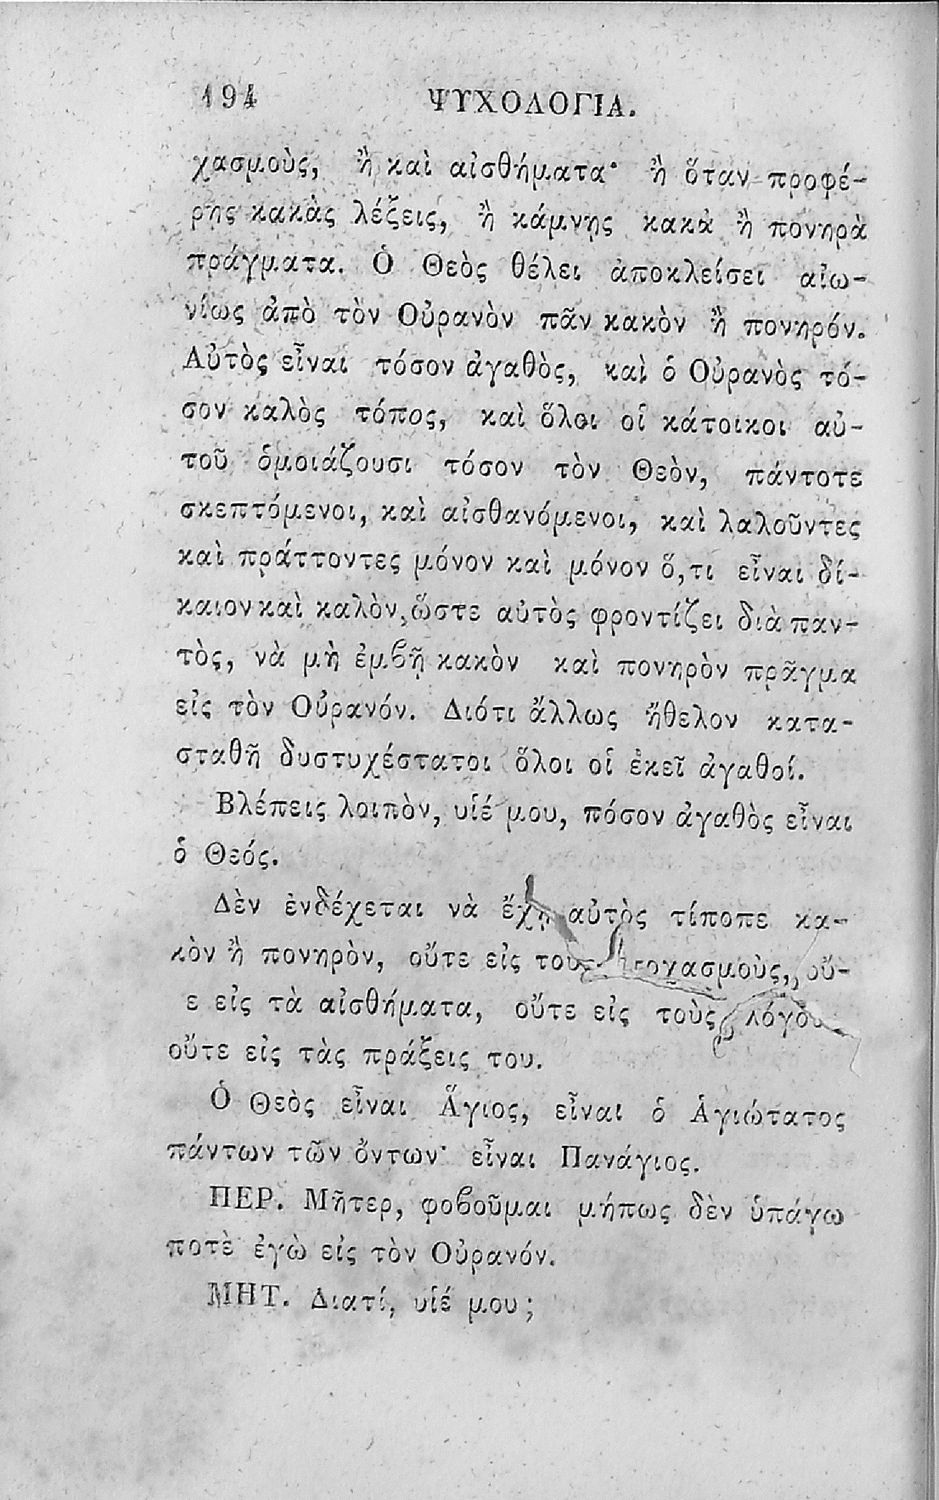 194 ΨΥΧΟΛΟΓΙΑ.
χασμοὺς, ἢ καὶ αἰσθήματα· ἢ ὅταν προφέ-
ρῃς κακὰς λέξεις, ἢ κάμνῃς κακὰ ἢ πονηρὰ
πράγματα. Ὁ Θεὸς θέλει ἀποκλείσει αἰω-
νίως ἀπὸ τὸν Οὐρανὸν πᾶν κακὸν ἢ πονηρόν.
Αὐτὸς εἶναι τόσον ἀγαθὸς, καὶ ὁ Οὐρανὸς τό-
σον καλὸς τόπος, καὶ ὅλοι οἱ κάτοικοι αὐ-
τοῦ ὁμοιάζουσι τόσον τὸν Θεὸν, πάντοτε
σκεπτόμενοι, καὶ αἰσθανόμενοι, καὶ λαλοῦντες
καὶ πράττοντες μόνον καὶ μόνον ὅ,τι εἶναι δί-
καιον καὶ καλὸν, ὥστε αὐτὸς φροντίζει διὰ παν-
τὸς, νὰ μὴ ἐμβῇ κακὸν καὶ πονηρὸν πρᾶγμα
εἰς τὸν Οὐρανόν. Διότι ἄλλως ἤθελον κατα-
σταθῆ δυστυχέστατοι ὅλοι οἱ ἐκεῖ ἀγαθοί.
Βλέπεις λοιπὸν, υἱέ μου, πόσον ἀγαθὸς εἶναι
ὁ Θεός.
Δὲν ἐνδέχεται νὰ ἔχῃ αὐτὸς τίποπε κα-
κὸν ἢ πονηρὸν, οὔτε εἰς τοὺς στοχασμοὺς, οὔ-
ε εἰς τὰ αἰσθήματα, οὔτε εἰς τοὺς λόγου
οὔτε εἰς τὰς πράξεις του.
Ὁ Θεὸς εἶναι Ἅγιος, εἶναι ὁ Ἁγιώτατος
πάντων τῶν ὄντων· εἶναι Πανάγιος.
ΠΕΡ. Μῆτερ, φοβοῦμαι μήπως δὲν ὑπάγω
ποτὲ ἐγὼ εἰς τὸν Οὐρανόν.
ΜΗΤ. Διατί, υἱέ μου;